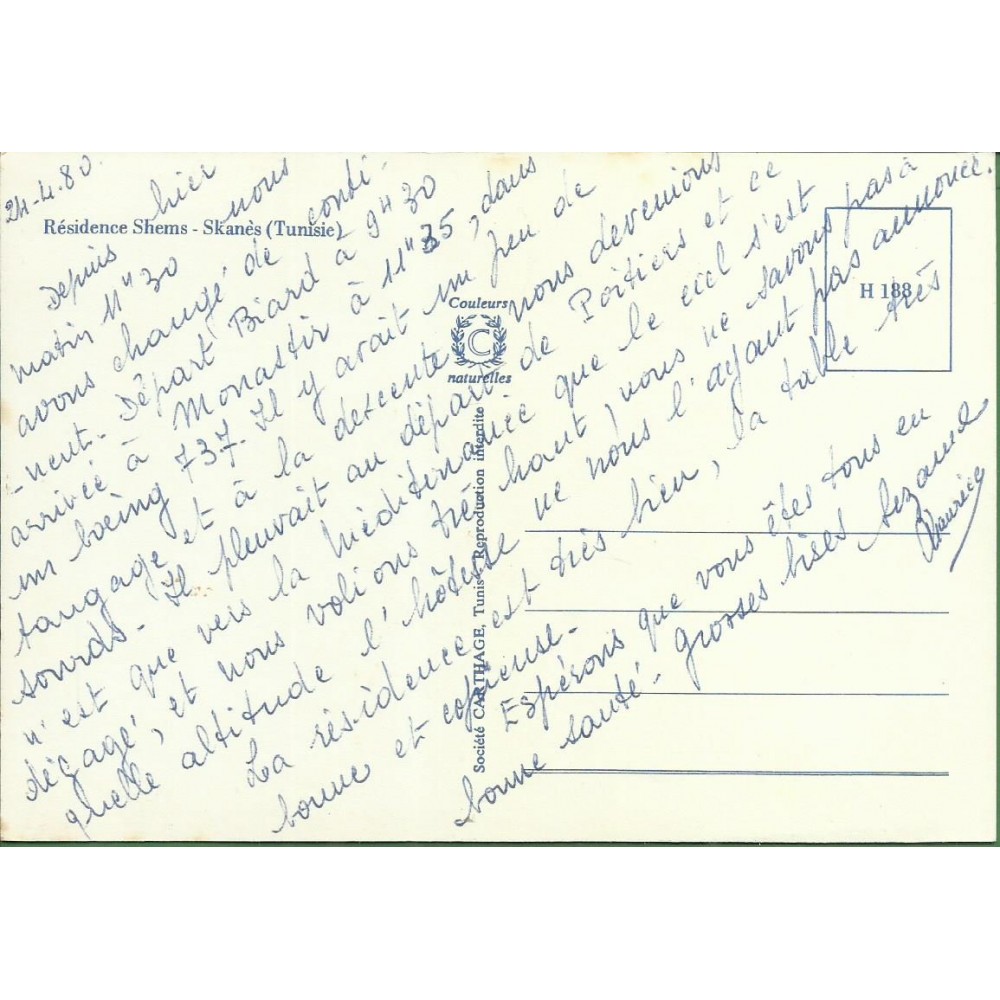 24-4.80.
Résidence Shems - Skanès (Tunisie)
Depuis hier
matin 11H30 nous
avons changé de conti-
-nent - Départ Biard à 9H30
arrivée à Monastir à 11H35, dans
un boeing 737. Il y avait un peu de
tangage et à la descente nous devenions
sourds - Il pleuvait au départ de Poitiers et ce
n'est que vers la Méditerranée que le ciel s'est
dégagé, et nous volions très haut, nous ne savons pas à
quelle altitude l'hôtesse ne nous l'ayant pas annoncé.
La résidence est très bien, la table très
bonne et copieuse -
Espérons que vous êtes tous en
bonne santé - grosses bises
Maurice
Couleurs
C
naturelles
Société CARTHAGE, Tunis - Reproduction interdite
H 188